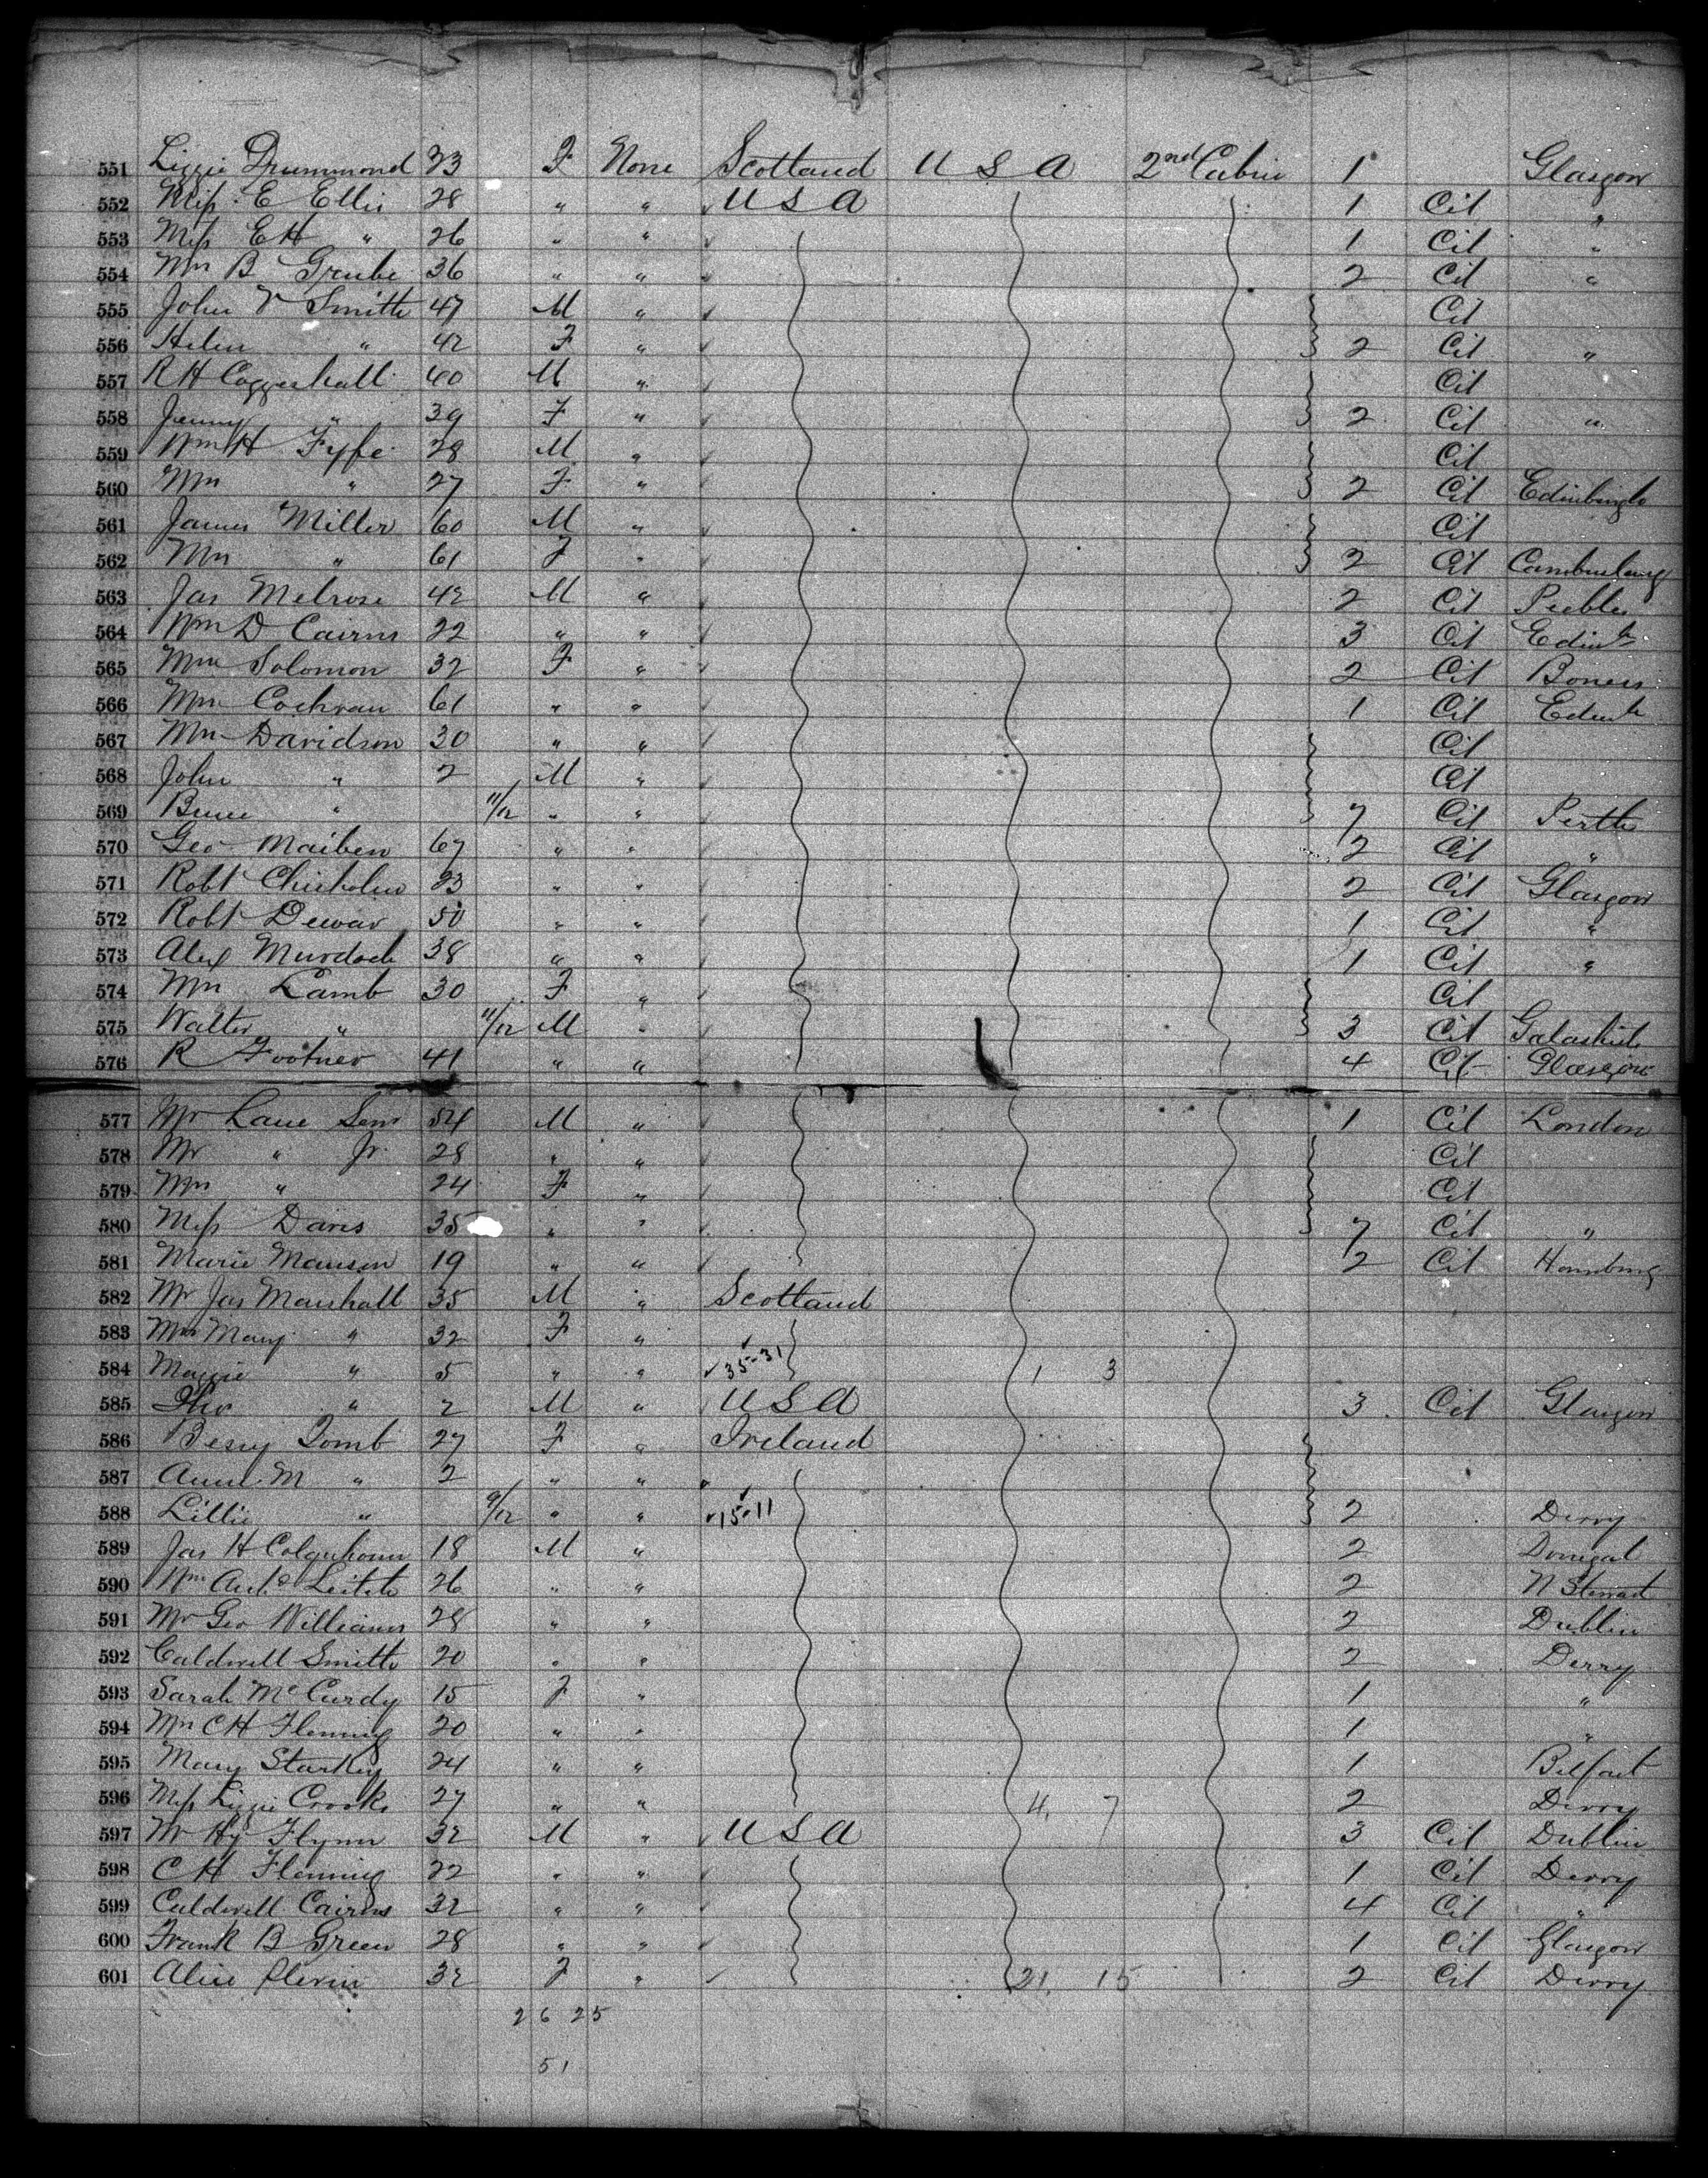 551 Lizzie Drummond 23 F None Scotland U S A 2nd Cabin 1 Glasgow
552 Miss E Ellis 28 " " U S A 1 Cit "
553 Miss E H " 26 " " 1 Cit "
554 Mrs B Grube 36 " " 2 Cit "
555 John V Smith 47 M " Cit
556 Helen " 42 F " 2 Cit "
557 R H Coggeshall 60 M " Cit
558 Jenny " 39 F " 2 Cit "
559 Wm H Fyfe 28 M " Cit
560 Mrs " 27 F " 2 Cit Edinburgh
561 James Miller 60 M " Cit
562 Mrs " 61 F " 2 Cit
563 Jas Melrose 42 M " 2 Cit Peebles
564 Wm D Cairns 22 " " 3 Cit Edinh
565 Mrs Solomon 32 F " 2 Cit Boness
566 Mrs Cochran 61 " " 1 Cit Edinh
567 Mrs Davidson 30 " " Cit
568 John " 2 M " Cit
569 Bruce " 11/12 " " 7 Cit Perth
570 Geo Maiben 67 " " 2 Cit "
571 Robt Chisholm 23 " " 2 Cit Glasgow
572 Robt Dewar 50 " " 1 Cit "
573 Alex Murdoch 38 " " 1 Cit "
574 Mrs Lamb 30 F " Cit
575 Walter " 11/12 M " 3 Cit Galashiels
576 R Footner 41 " " 4 Cit Glasgow
577 Mr Lane Senr 54 M " 1 Cit London
578 Mr " Jr. 28 " " Cit
579 Mrs " 24 F " Cit
580 Miss Davis 35 " " 7 Cit "
581 Marie Manson 19 " " 2 Cit Hamburg
582 Mr Jas Marshall 35 M " Scotland
583 Mrs Mary " 32 F "
584 Maggie " 5 " " 35-31 1 3
585 Thos " 2 M " U S A 3 Cit Glasgow
586 Bessy Tomb 27 F " Ireland
587 Annie M " 2 " "
588 Lillie " 9/12 " " 15-11 2 Derry
589 Jas H Colquhoun 18 M " 2 Donegal
590 Wm Leitch 26 " " 2 N Stewart
591 Mr Geo Williams 28 " " 2 Dublin
592 Caldwell Smith 20 " " 2 Derry
593 Sarah McCurdy 15 F " 1 "
594 Mrs C H Fleming 20 " " 1 "
595 Mary Starkey 24 " " 1 Belfast
596 Miss Lizzie Crooks 27 " " 4 7 2 Derry
597 Mr Hy Flynn 32 M " U S A 3 Cit Dublin
598 C H Fleming 22 " " 1 Cit Derry
599 Caldwell Cairns 32 " " 4 Cit "
600 Frank B Green 28 " " 1 Cit Glasgow
601 Alice 32 F " 21 15 2 Cit Derry
26 25
51